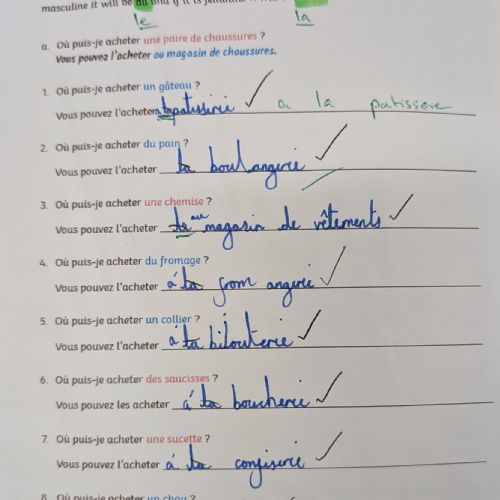 masculine it will be au and if it is
le la
a. Où puis-je acheter une paire de chaussures ?
Vous pouvez l'acheter au magasin de chaussures.
1. Où puis-je acheter un gâteau ?
Vous pouvez l'acheter a la patisserie a la patissere
2. Où puis-je acheter du pain ?
Vous pouvez l'acheter la boulangerie
3. Où puis-je acheter une chemise ?
Vous pouvez l'acheter au magasin de vêtements
4. Où puis-je acheter du fromage ?
Vous pouvez l'acheter á la from angerie
5. Où puis-je acheter un collier ?
Vous pouvez l'acheter á la bijouterie
6. Où puis-je acheter des saucisses ?
Vous pouvez les acheter á la boucherie
7. Où puis-je acheter une sucette ?
Vous pouvez l'acheter á la confiserie
8. Où puis-je acheter un chou ?